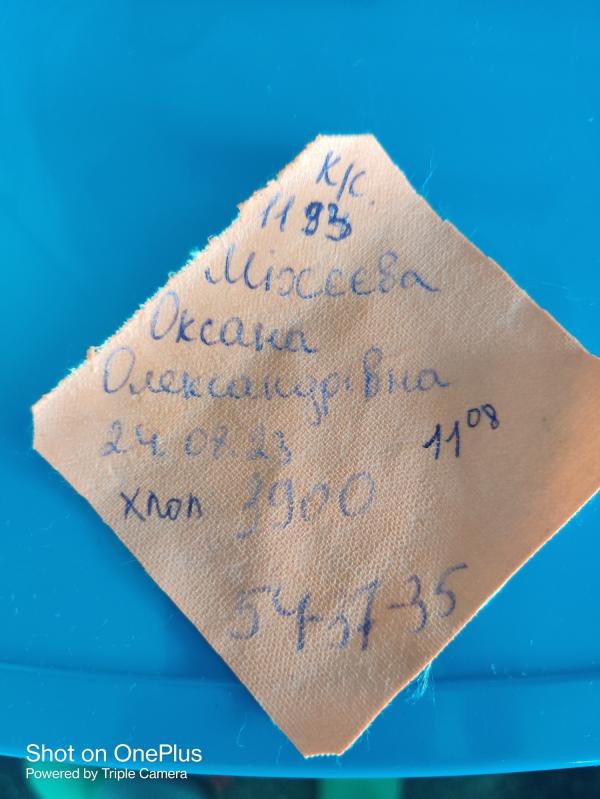 к/с.
1193
Міхєєва
Оксана
Олександрівна
24.08.23 11⁰⁸
хлоп 3900
54-37-35
Shot on OnePlus
Powered by Triple Camera